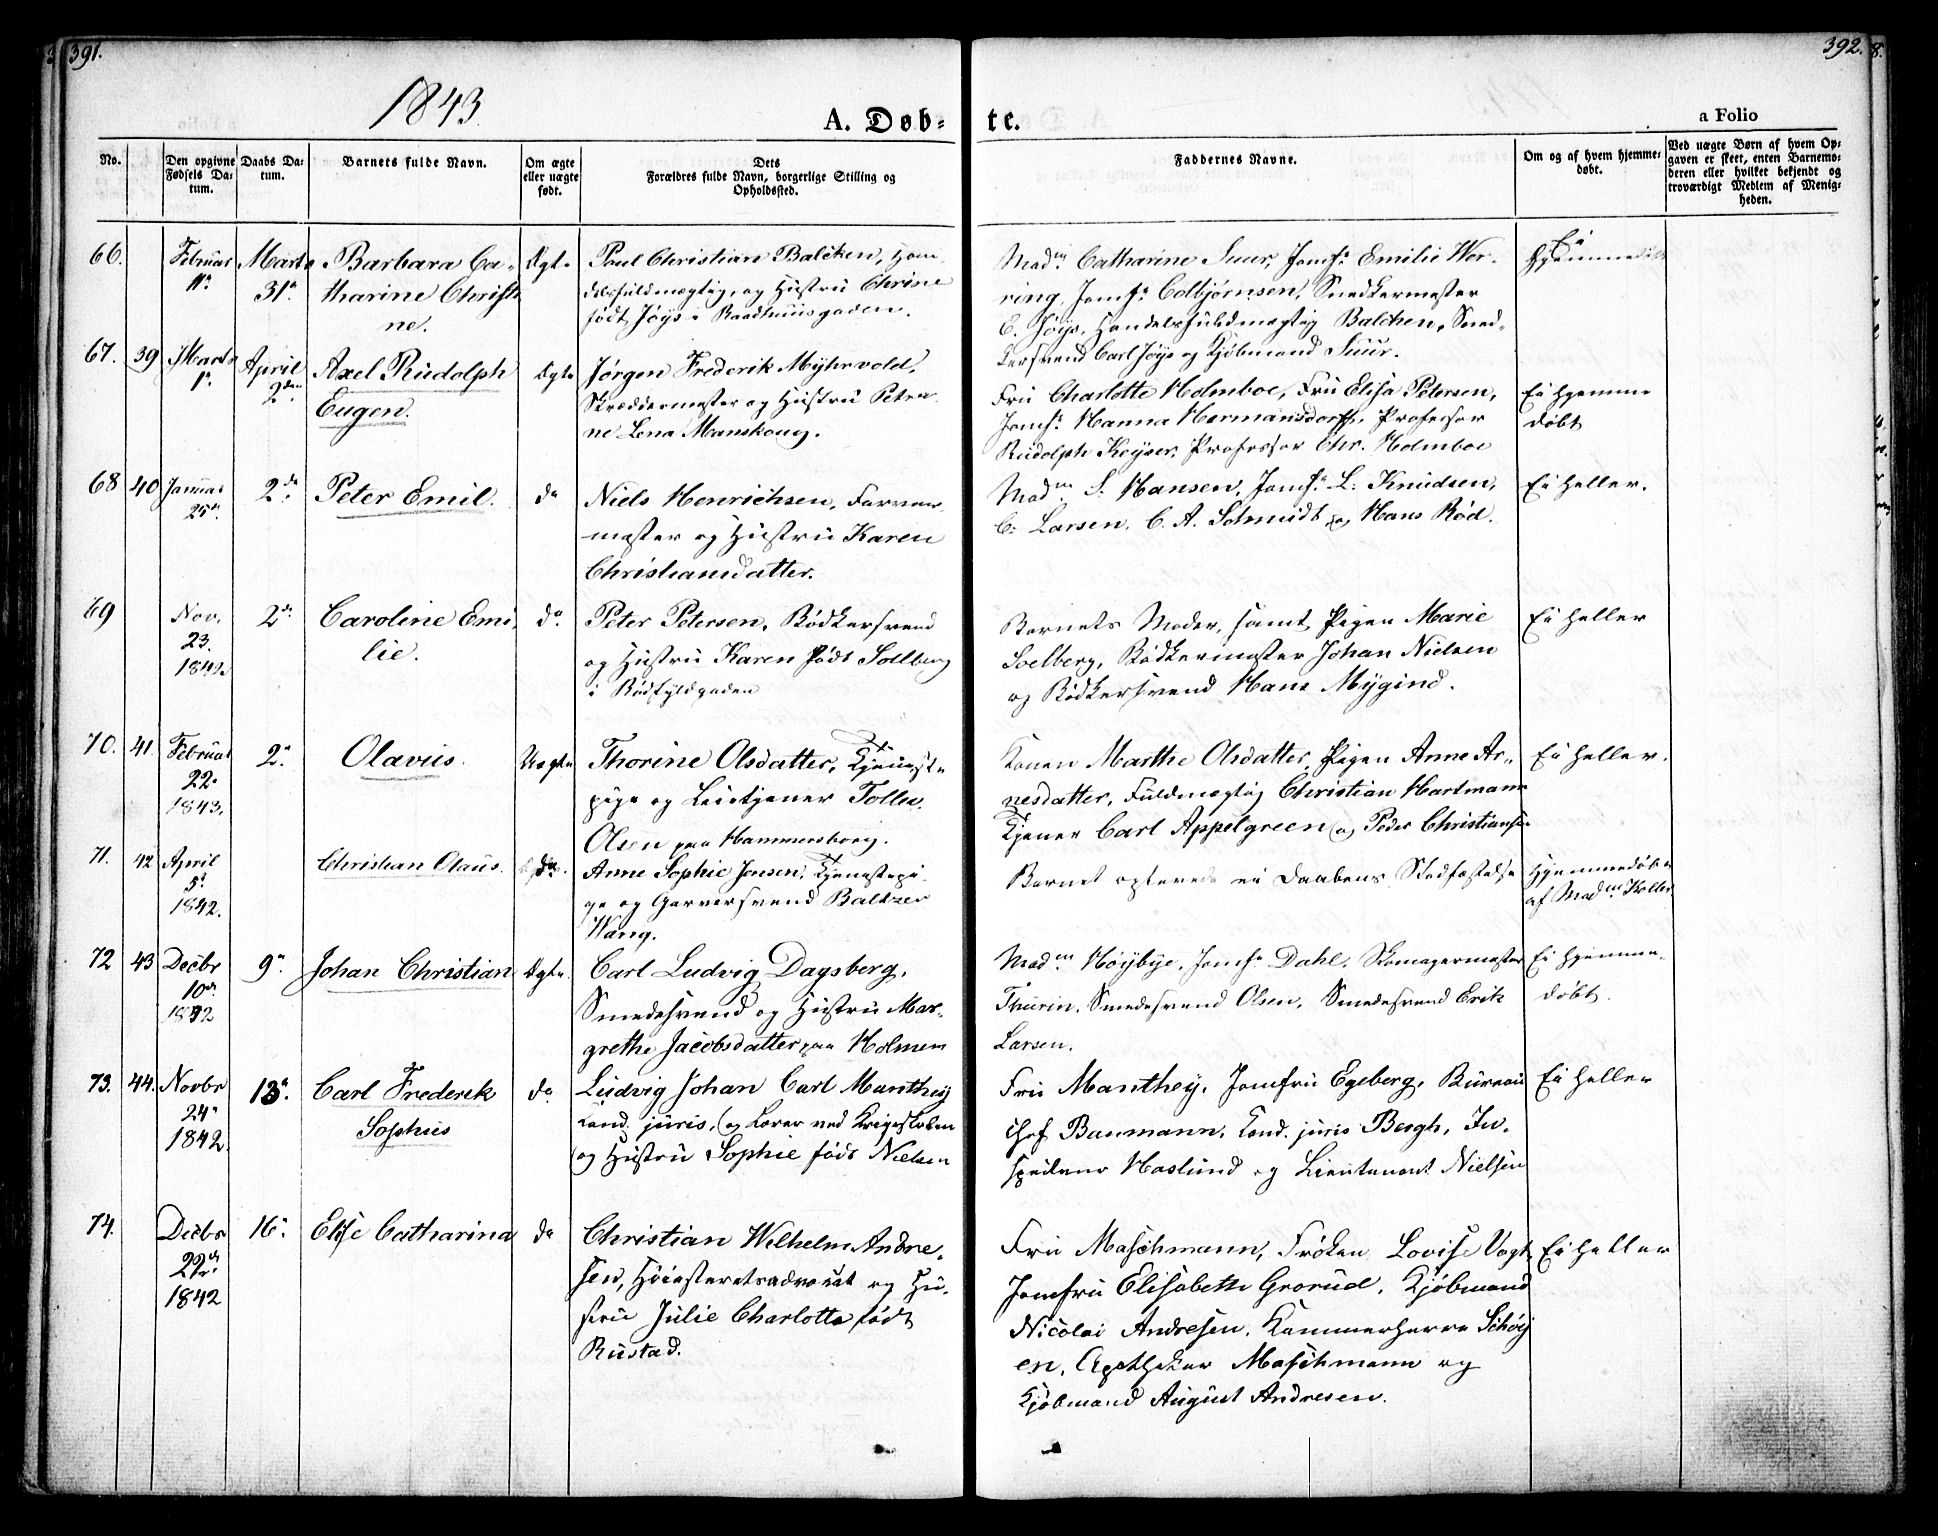 391.
392.
8.
1843.
A. Døb-
te.
a Folio
No.
Den opgivne Fødsels Da-
tum.
Daabs Da-
tum.
Barnets fulde Navn.
Om ægte
eller uægte
født.
Dets
Forældres fulde Navn, borgerlige Stilling og
Opholdssted.
Faddernes Navne.
Om og af hvem hjemme-
døbt.
Ved uægte Børn af hvem Op-
gaven er skeet, enten Barnemo-
deren eller hvilket bekjendt og
troværdigt Medlem af Menig-
heden.
66.
Februar
11te
Marts
31te
Barbara Ca-
tharine Christi
ne.
Ægte
Poul Christian Balcken, Han-
delsfuldmægtig, og Hustru Chrine
født Jøys i Raadhuusgaden.
Madm. Catharine Suur, Jomfr. Emilie Wer-
ring, Jomfr. Colbjørnsen, Snedkermester
E. Jøys, Handelsfuldmægtig Balchen, Sned-
kersvend Carl Jøys og Kjøbmand Suur.
Ei
hjemmedøbt
67. 39
Marts
1ste
April
2den
Axel Rudolph
Eugen.
Ægte
Jørgen Frederik Myhrvold,
Skræddermester og Hustru Petra
ne Lena Manskoug.
Fru Charlotte Holmboe, Fru Elisa Petersen,
Jomfr. Hanna Hermansdorff, Professor
Rudolph Keyser, Professor Chr. Holmboe
Ei hjemme
døbt
68 40
Januar
25de
2den
Peter Emil.
do
Niels Henrichsen, Farver
mester og Hustru Karen
Christiansdatter.
Madm. S. Hansen, Jomfr. L. Knudsen,
C. Larsen, C. A. Schmidt og Hans Rød.
Ei heller.
69
Nov.
23.
1842.
2den
Caroline Emi
lie.
do
Peter Petersen, Bødkersvend
og Hustru Karen født Sollberg
i Rødfyldgaden
Barnets Moder, samt Pigen Marie
Soelberg, Bødkermester Johan Nielsen
og Bødkersvend Hans Mygind.
Ei heller
70. 41.
Februar
22.
1843.
2.
Olavus.
Uægte
Thorine Olsdatter, Tjeneste
pige og Leietjener Tollev
Olsen paa Hammersborg.
Konen Marthe Olsdatter, Pigen Anne Ar-
nesdatter, Fuldmægtig Christian Hartmann
Tjener Carl Appelgreen og Peder Christiansen
Ei heller.
71. 42
April
5te
1842.
Christian Olaus.
do
Anne Sophie Jensen, Tjenestepi
ge og Garversvend Baltzer
Wang.
Barnet opterede ei Daabens Stadfæstelse
Hjemmedøbt
af Madm. Koller
72 43
Decbr
10de
1842
9de
Johan Christian
Ægte
Carl Ludvig Dagsberg,
Smedesvend og Hustru Mar-
grethe Jacobsdatter paa Holmen
Madm. Høybye, Jomfr. Dahl, Skomagermester
Thurin, Smedesvend Olsen, Smedesvend Erik
Larsen.
Ei hjemme-
døbt.
73. 44.
Novbr
24de
1842.
13de
Carl Frederik
Sophus
do
Ludvig Johan Carl Manthey
Cand. juris, og Lærer ved Krigsskolen
og Hustru Sophie født Nielsen
Fru Manthey, Jomfru Egeberg, Bureau
chef Baumann, Cand. juris Bergh, In-
specteur Haslund og Lieutenant Nielsen
Ei heller
74.
Decbr
22de
1842
16de
Elise Catharina
do
Christian Wilhelm Andre-
sen, Høiesteretsadvocat og Hu-
stru Julie Charlotte født
Rustad.
Fru Maschmann, Frøken Lovise Vogt,
Jomfru Elisabeth Grorud, Kjøbmand
Nicolai Andresen, Kammerherre Schøy
en, Apotheker Maschmann og
Kjøbmand August Andresen.
Ei heller